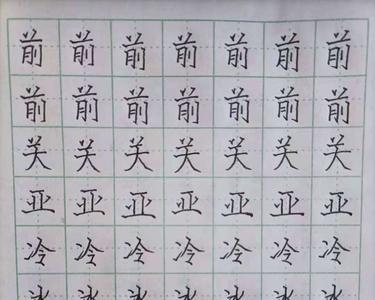 前前前前前前前
前前前前前前前
关关关关关关关
亚亚亚亚亚亚亚
冷冷冷冷冷冷冷